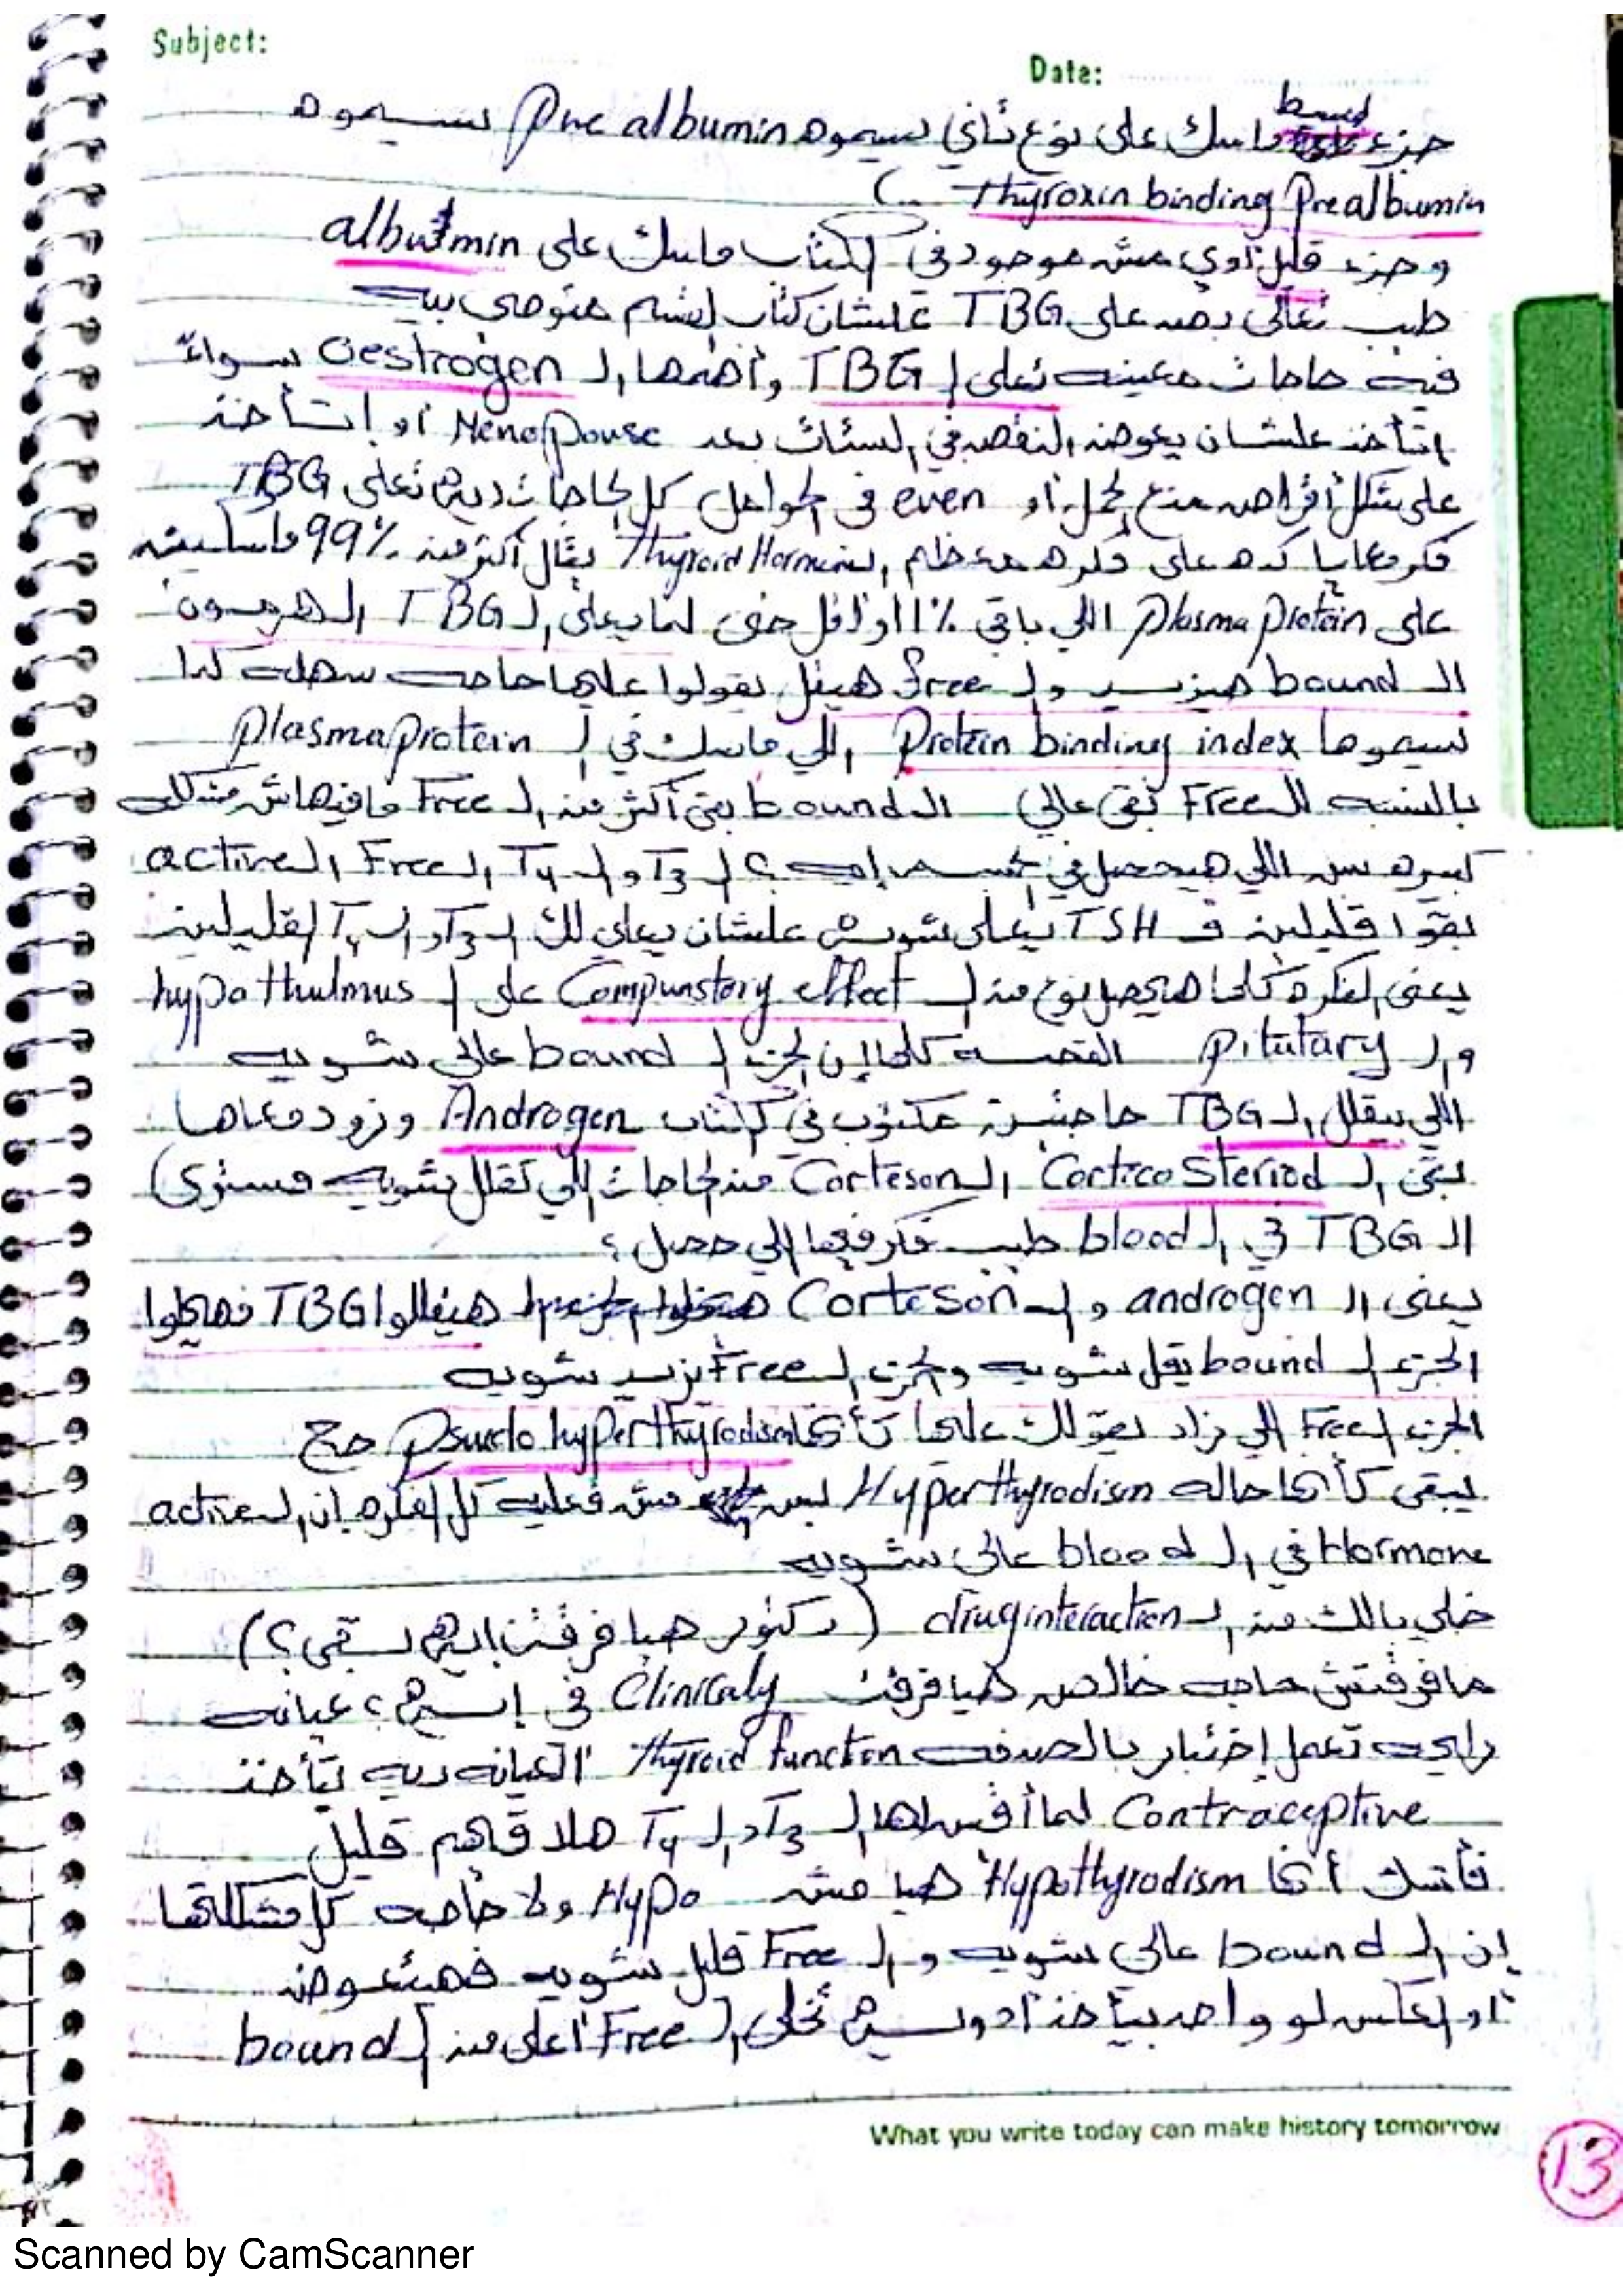 Subject:
Date:
بسيط
جزء ماسك على نوع تاني بيسموه Pre albumin بسيموه
Thyroxin binding Prealbumin (..
وجزء قليل أوي مش موجود في الكتاب ماسك على albutmin
طيب تعالى بص على TBG علشان كتاب القسم متوصي بيه
فيه حاجات معينه تعلى ال TBG وأهمها ال Oestrogen سواءً
اتتأخذ علشان يعوض النقص في الستات بعد Menopouse أو اتتأخذ
على شكل أقراص منع الحمل أو even في الحوامل كل الحاجات ديه تعلى TBG
فكر معايا كده على فكره معظم ال Thyroid Hormone يقال أكتر من 99% ماسكين
على Plasma protein اللي باقي 1% أو أقل حتى لما يعلى ال TBG الهرمون
ال bound هيزيد وال free هيقل يقولوا عليها حاجه سهله كدا
بسيموها Protein binding index اللي ماسك في ال Plasma protein
بالنسبه لل Free تبقى عالي ال bound بقى أكتر من ال Free مافيهاش مشكله
كبيره بس اللي هيحصل في الجسم إيه؟ ال T3 وال T4 ال Free ال active
بقوا قليلين ف TSH يعلى شويه علشان يعلي لك ال T3 وال T4 القليلين
يعني الفكره كلها هيحصل نوع من ال Compunstory effect على ال hypothulmus
وال Pitutary القصه كلها إن الجزء ال bound عالي شويه
اللي بيقلل ال TBG حاجتين مكتوب في الكتاب Androgen وزود معاها
بقى ال Cortico Steriod ال Corteson من الحاجات اللي تقلل شويه مستوى)
ال TBG في ال blood طيب فكر فيها اللي حصل؟
يعني ال androgen وال Corteson هيقللوا TBG فهيخلوا
الجزء ال bound يقل شويه والجزء ال Free يزيد شويه
الجزء ال Free اللي زاد يقولك عليها كأنها Psuedo hyperthyrodism صح
يبقى كأنها حاله Hyperthyrodism بس مش فعليه كل الفكره إن ال active
Hormone في ال blood عالي شويه
خلي بالك من ال drug interaction (دكتور هيا فرقت ايه بقى؟)
مافرقتش حاجه خالص هيا فرقت Clinicaly في إيه؟ عيانه
رايحه تعمل إختبار بالصدفه Thyroid function العيانه ديه بتأخذ
Contraceptive لما أقيس لها ال T3 وال T4 هلاقيهم قليل
فأشك أنها Hypothyrodism هيا مش Hypo ولا حاجه كل مشكلتها
إن ال bound عالي شويه وال Free قليل شويه فهتتعوض
أو العكس لو واحد بيأخذ أدويه تخلي ال Free أعلى من ال bound
What you write today can make history tomorrow
13
Scanned by CamScanner